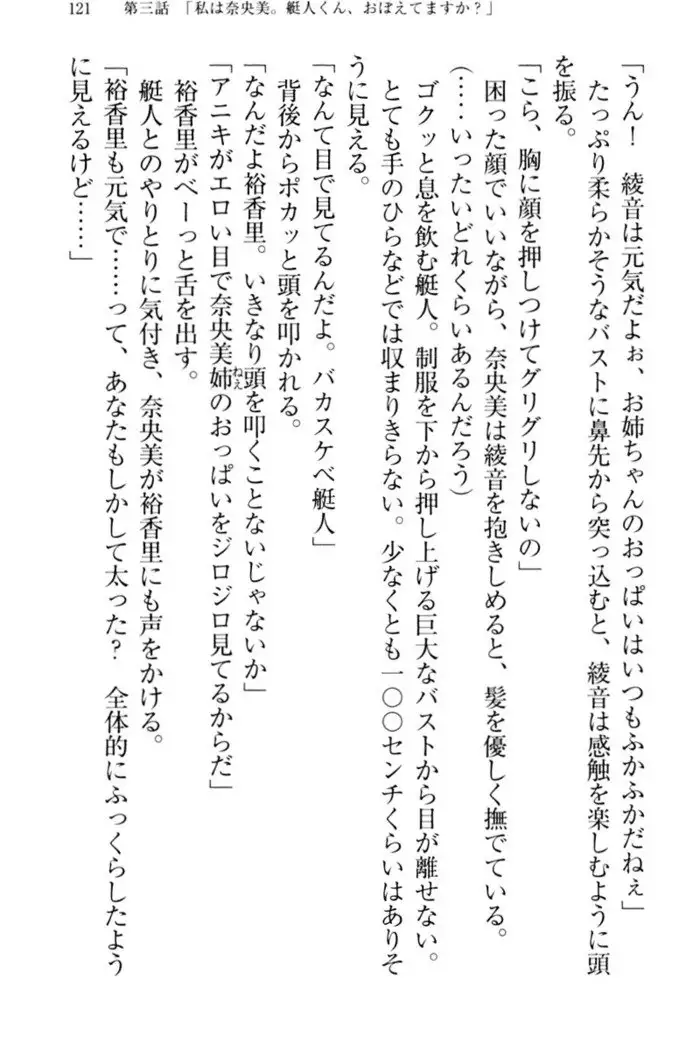 121　第三話　「私は奈央美。艇人くん、おぼえてますか？」
「うん！　綾音は元気だよぉ、お姉ちゃんのおっぱいはいつもふかふかだねぇ」
たっぷり柔らかそうなバストに鼻先から突っ込むと、綾音は感触を楽しむように頭
を振る。
「こら、胸に顔を押しつけてグリグリしないの」
困った顔でいいながら、奈央美は綾音を抱きしめると、髪を優しく撫でている。
（……いったいどれくらいあるんだろう）
ゴクッと息を飲む艇人。制服を下から押し上げる巨大なバストから目が離せない。
とても手のひらなどでは収まりきらない。少なくとも一〇〇センチくらいはありそ
うに見える。
「なんて目で見てるんだよ。バカスケベ艇人」
背後からポカッと頭を叩かれる。
「なんだよ裕香里。いきなり頭を叩くことないじゃないか」
「アニキがエロい目で奈央美姉ねぇのおっぱいをジロジロ見てるからだ」
裕香里がべーっと舌を出す。
艇人とのやりとりに気付き、奈央美が裕香里にも声をかける。
「裕香里も元気で……って、あなたもしかして太った？　全体的にふっくらしたよう
に見えるけど……」